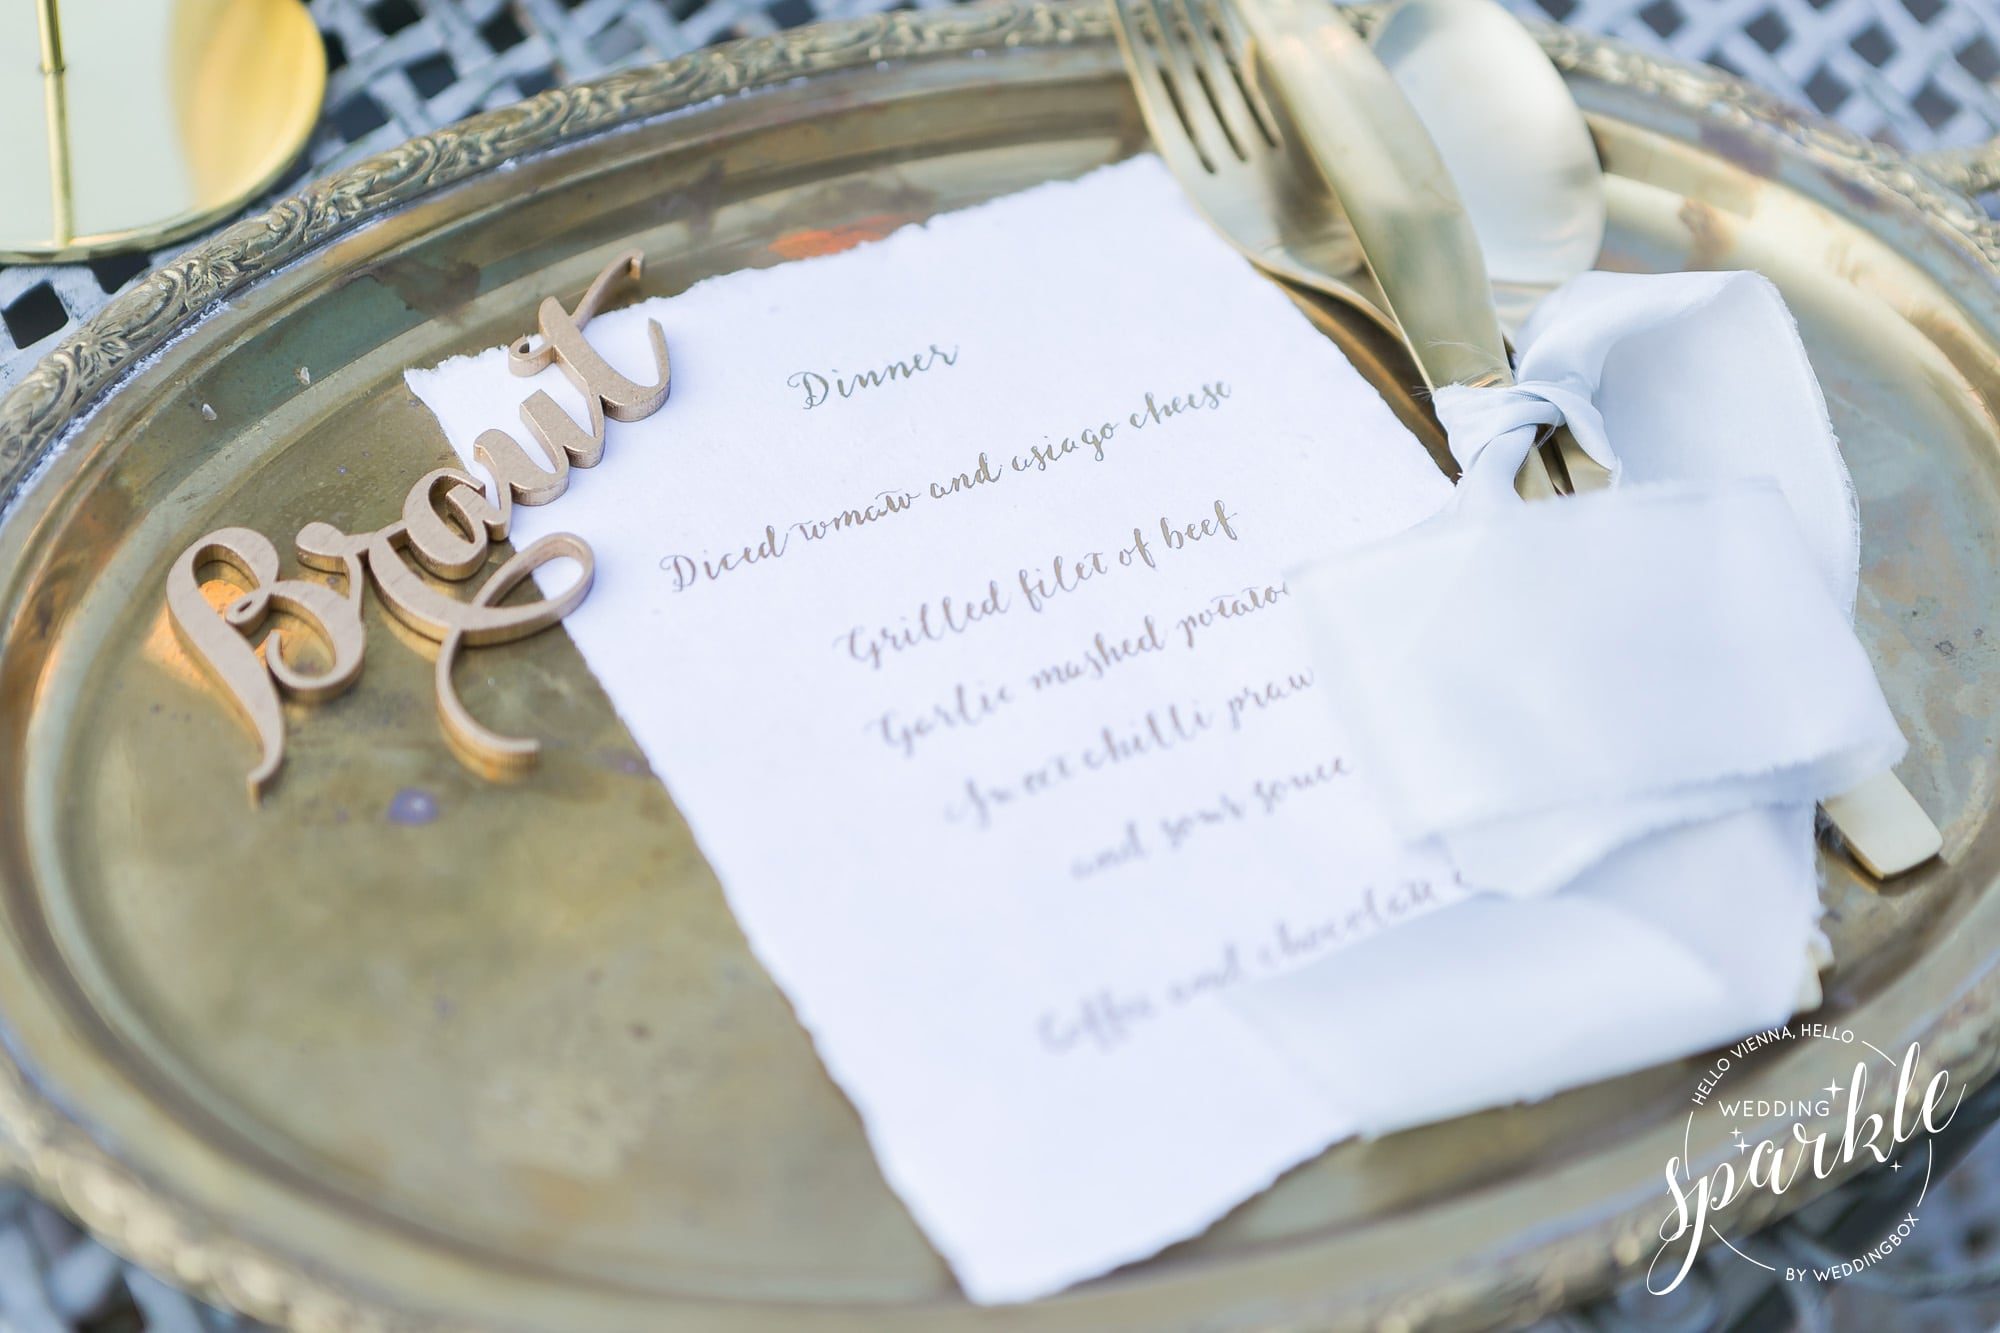 Braut
Dinner
Diced tomato and asiago cheese
Grilled filet of beef
Garlic mashed
Sweet chilli
and sour sauce
Coffee and chocolate
HELLO VIENNA, HELLO
WEDDING
sparkle
BY WEDDINGBOX